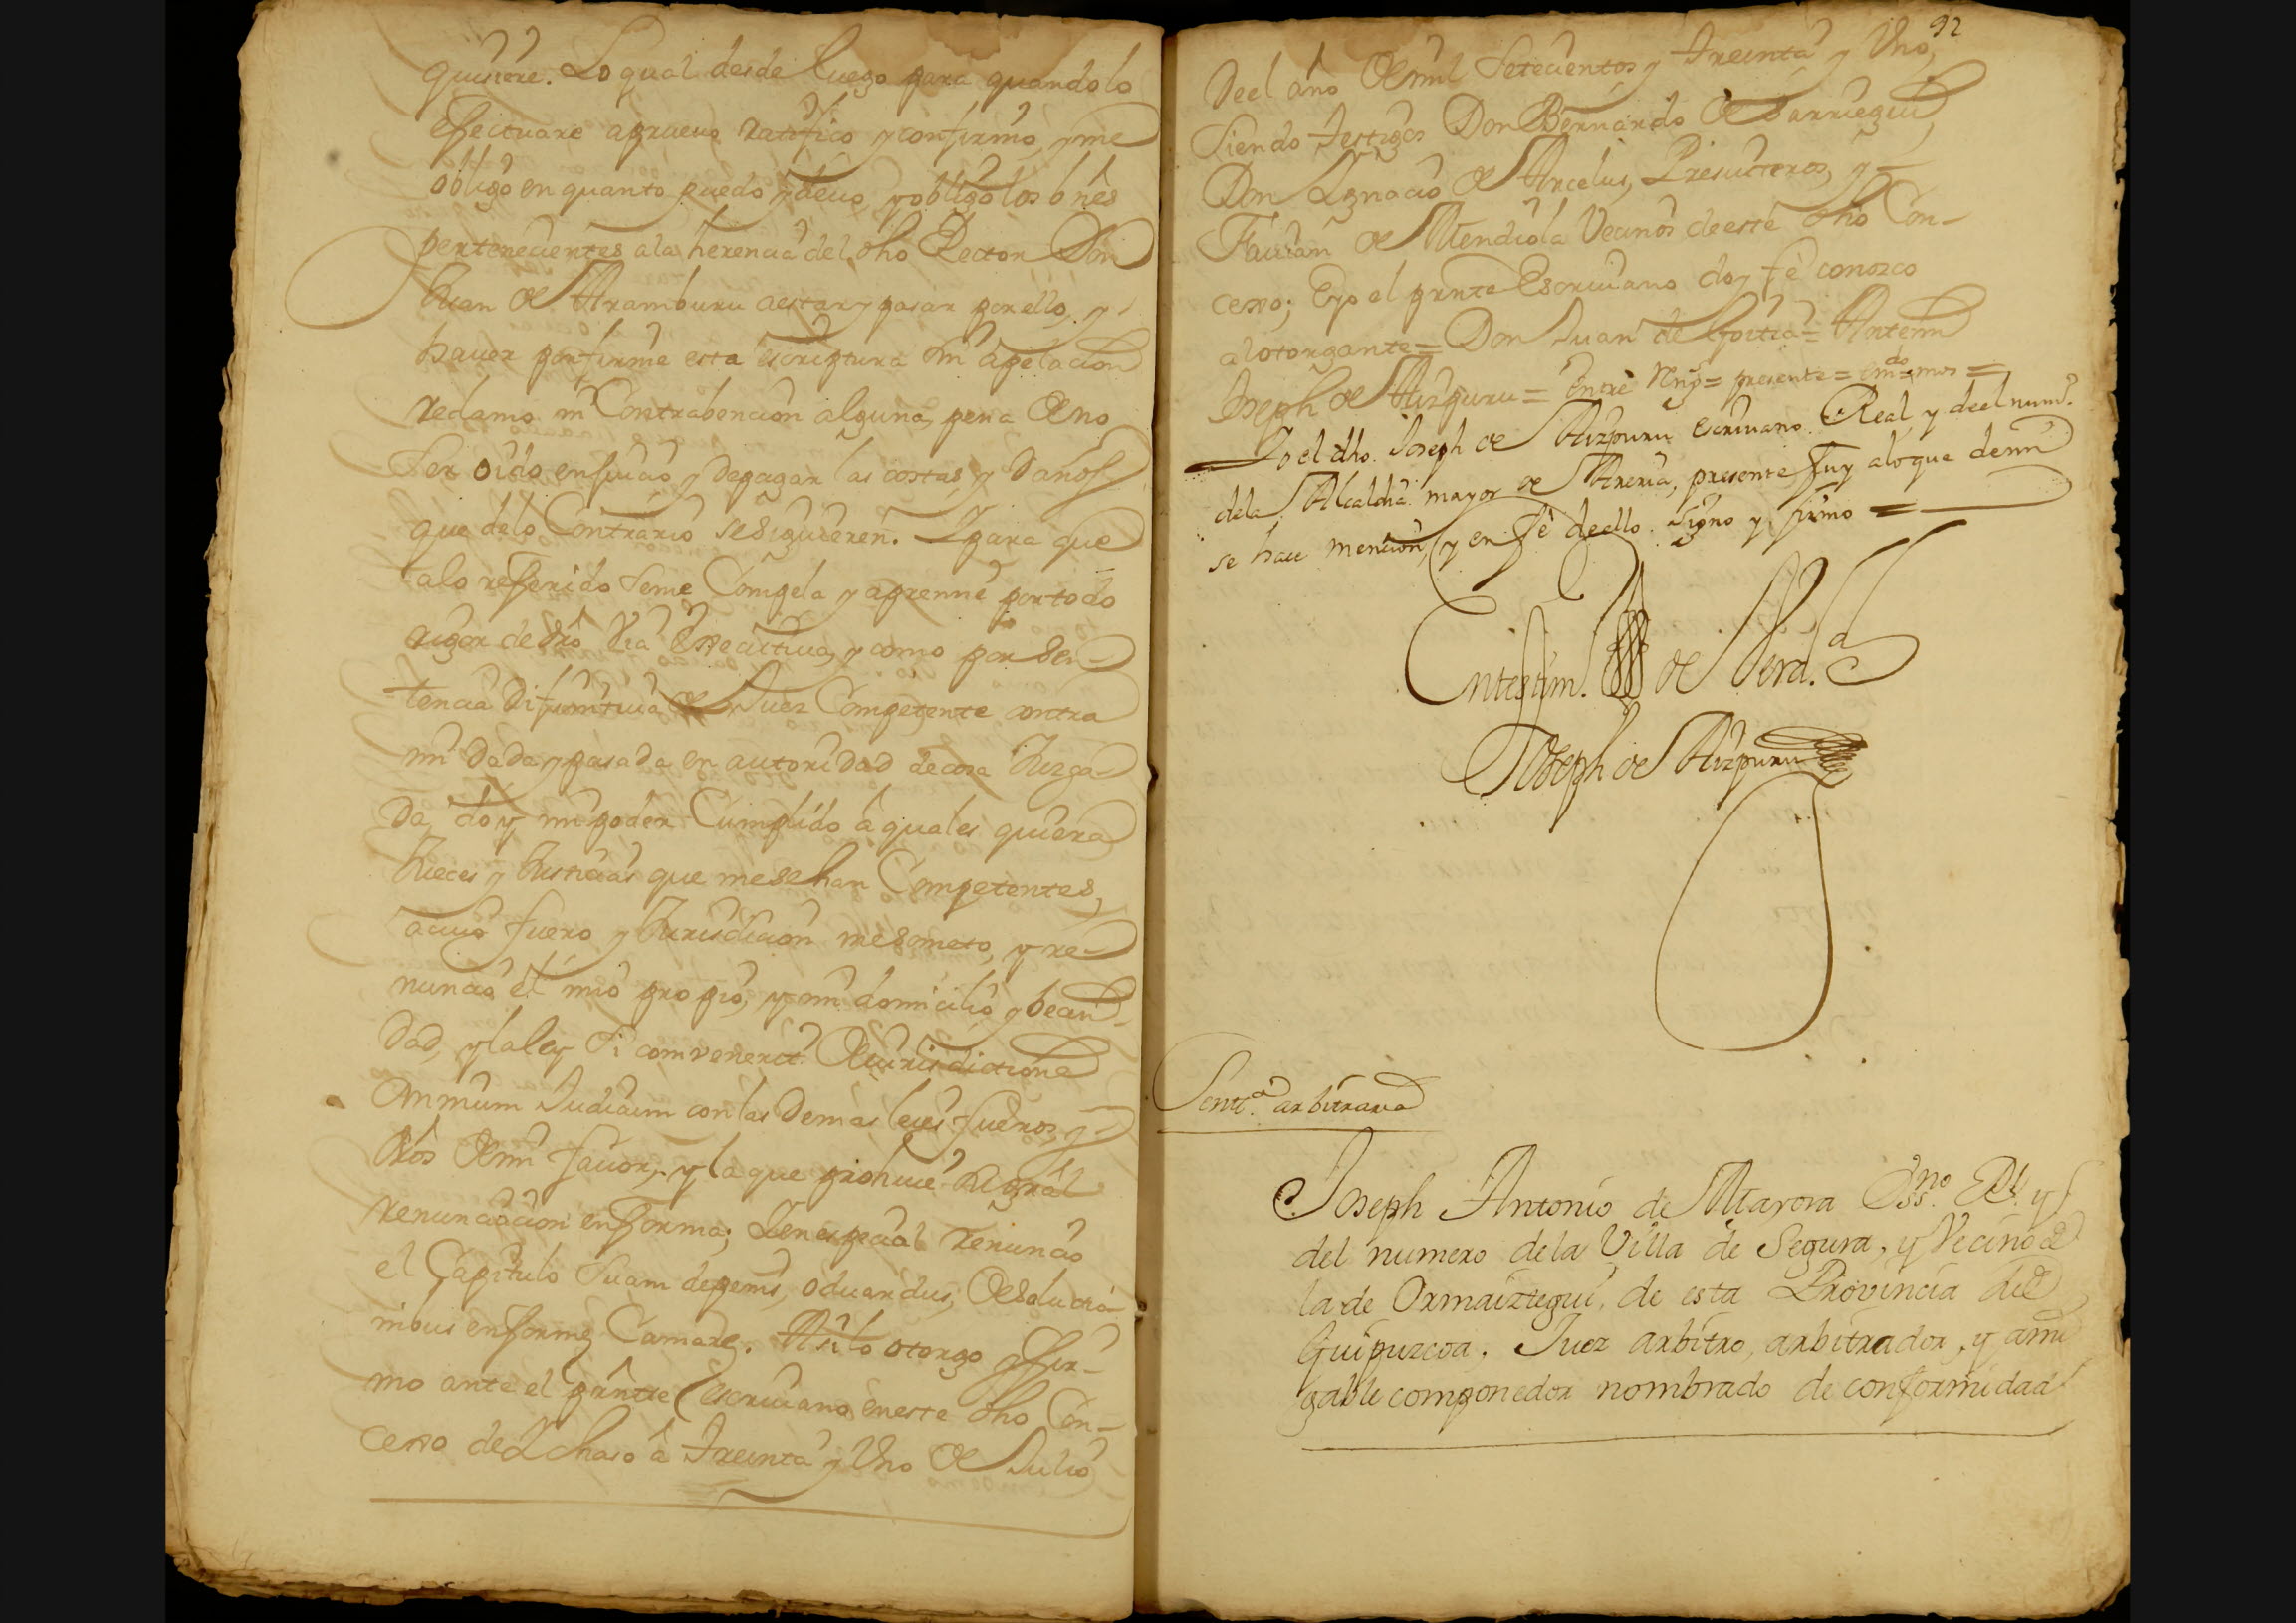 quisiere. Lo qual desde luego para quando lo
efectuare apraeuo ratifico y confirmo, y me
obligo en quanto puedo y deuo, y obligo los bnes
pertenecientes a la herencia del dho Rector Don
Juan de Aramburu a estar y pasar por ello, y
hauer por firme esta escriptura sin apelacion
reclamo ni Contrabencion alguna, pena de no
ser oido en juicio y de pagar las costas y daños
que delo Contrario se siguieren. Y para que
alo referido se me Compela y apremie por todo
rigor de dro Via Executiua, y como por Sen-
tencia difinitiua de Juez Competente contra
mi dada y pasada en autoridad de cosa Juzga-
da, doy mi poder Cumplido à quales quiera
Jueces y Justicias que me sehan Competentes,
a cuio fuero y Jurisdicion me someto, y re-
nuncio el mio propio, y mi domicilio y becin-
dad, y la ley Si convenerit de iurisdictione
Omnium Judicum con las demas leies fueros, y
dros de mi fauor, y la que prohiue la gral
renunciacion en forma; Y en especial renuncio
el Capitulo Suam de penis, oduardus, de solucio-
nibus en forma Camare. Asi lo otorgo y fir-
mo ante el prnte Escriuano en este dho Con-
cexo de Ychaso à treinta y Uno de Julio
92
Deel año de mil Setecientos y treinta y Uno,
Siendo testigos Don Bernardo de Barriegui
Don Ygnacio de Arcelus, Presuiteros, y
Fauian de Mendiola Vecinos de este dho Con-
cexo; E yo el prnte Escriuano doy fè conozco
al otorgante = Don Juan de Goitia = Ante mi
Joseph de Aizpuru = Entre Rengs = presente = emdo = mos =
Yo el dho. Joseph de Aizpuru escriuano Real, y deel num.
dela Alcaldia mayor de Areria, presente fuy alo que de mi
se hace mencion, y en fè de ello signo y firmo =
En testim. de Verd.a
Joseph de Aizpuru
Sentc.a arbitraria
Joseph Antonio de Mayora Ess.no Rl. y
del numero de la Villa de Segura, y Vecino de
la de Ormaiztegui, de esta Provincia de
Guipuzcoa, Juez arbitro, arbitrador, y ami
gable componedor nombrado de conformidad